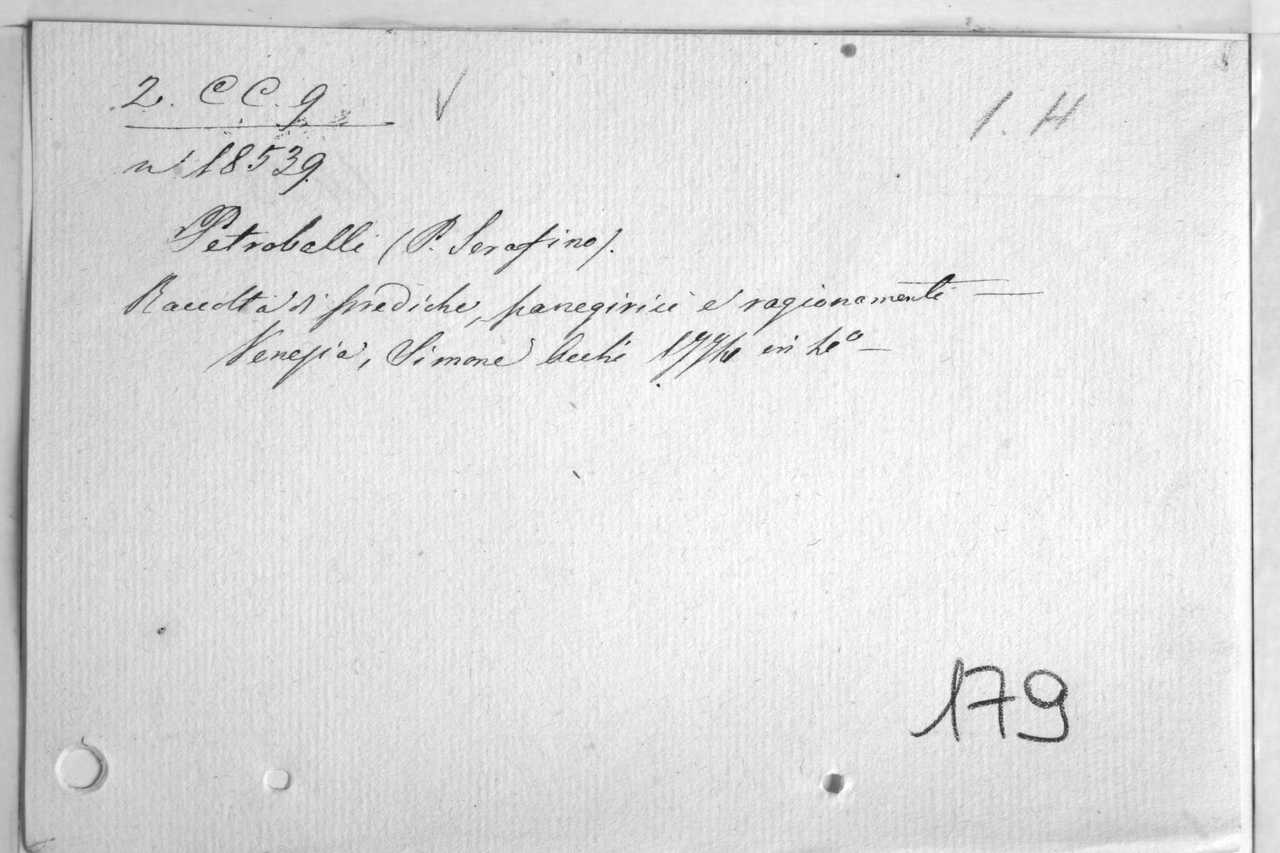 2. CC. 9
1. H
n° 18539
Petrobelli (P. Serafino).
Raccolta di prediche, panegirici e ragionamenti —
Venezia, Simone Occhi 1776 in 4° —
179